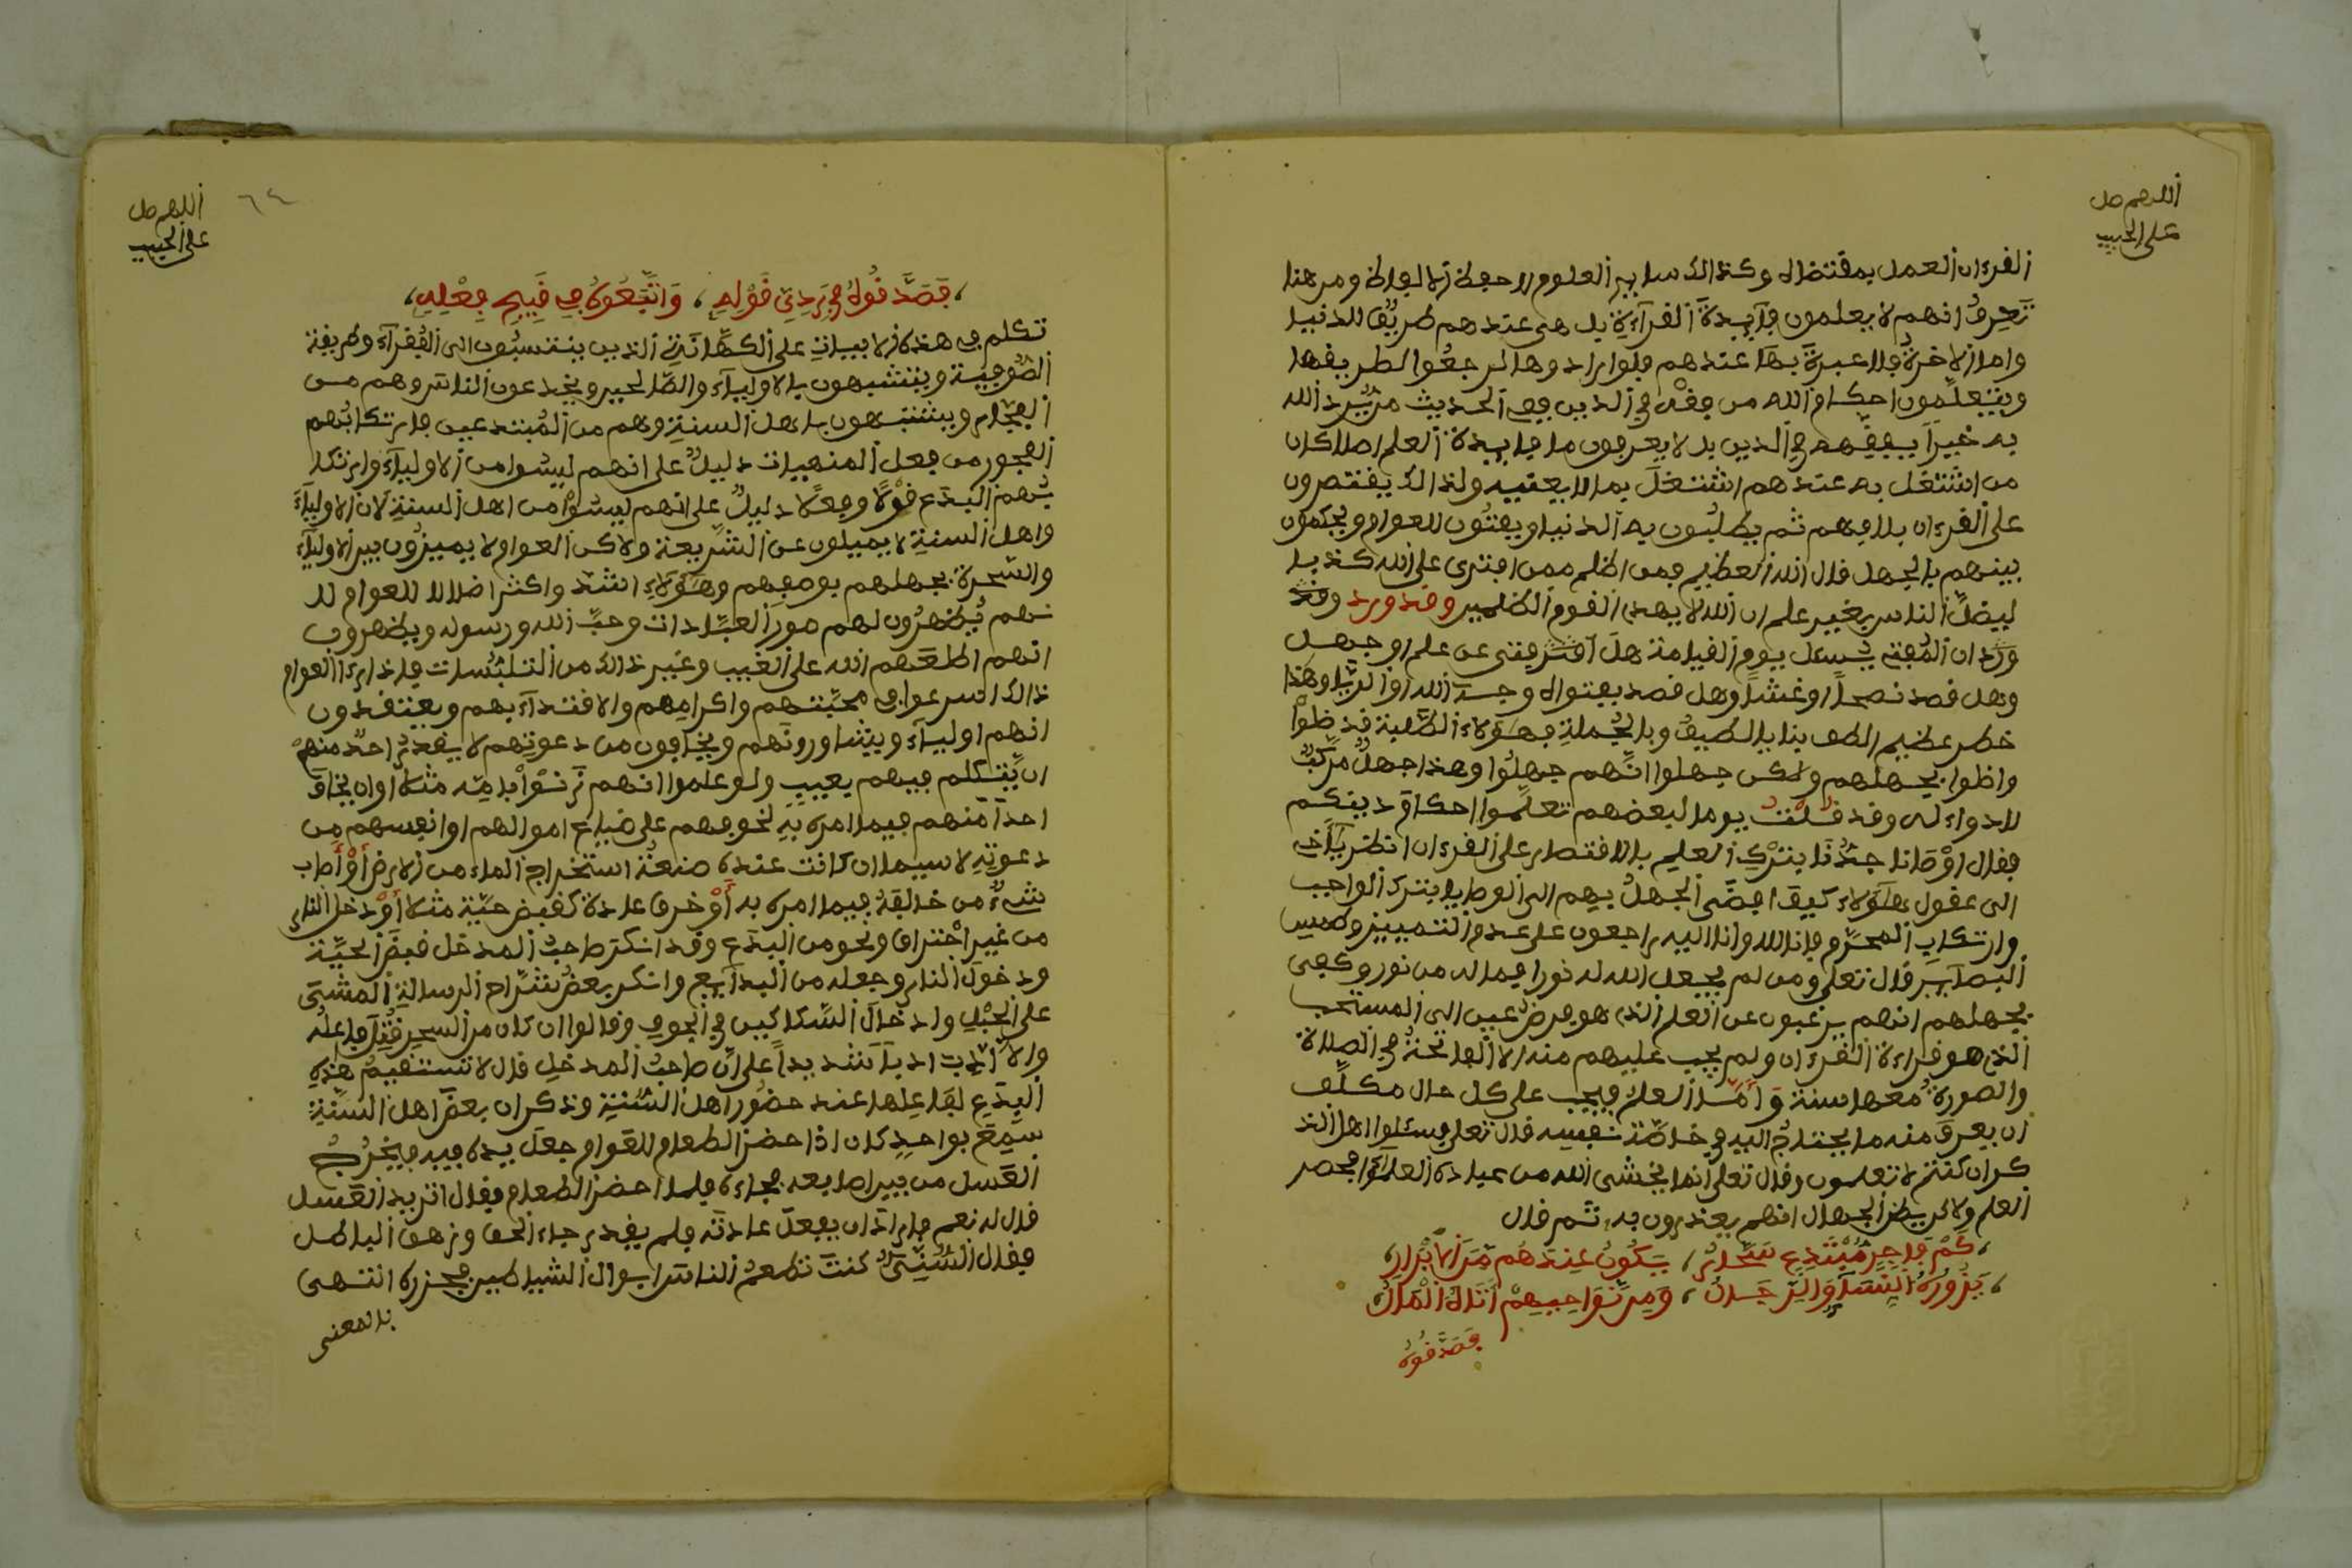 اللهم صل
على الحبيب
القرءان العمل بمقتضاه وكذالك ساير العلوم لا حفظ الالفاظ ومن هنا
تعرف انهم لا يعلمون فآيدة القرآءة بل هى عندهم طريق للدنيا
واما الاخرة فلا عبرة بها عندهم فلو ارادوها لرجعوا لطريقها
ويتعلمون احكام الله من فقه فى الدين ففى الحديث من يرد الله
به خيرا يفقهه فى الدين بل لا يعرفون ما فايدة العلم اصلا كان
من اشتغل به عندهم اشتغل بما لا يعنيه ولذالك يقتصرون
على القرءان بلا فهم ثم يطلبون به الدنيا ويفتون للعوام ويحكمون
بينهم بالجهل قال الله العظيم فمن اظلم ممن افترى على الله كذبا
ليضل الناس بغير علم ان الله لا يهدى القوم الظلمين وقد ورد وقد
ورد ان المفتى يسئل يوم القيامة هل افتى عن علم او جهل
وهل قصد نصحا او غشا وهل قصد بفتواه وجه الله او الريا وهذا
خطر عظيم الطف بنا يا لطيف وبالجملة فهؤلاء الطلبة قد ضلوا
واضلوا بجهلهم ولكن جهلوا انهم جهلوا وهذا جهل مركب
لا دواء له وقد قلت يوما لبعضهم تعلموا احكام دينكم
فقال اوصانا جدنا بترك العلم بالاقتصار على القرءان انظر يا اخى
الى عقول هؤلاء كيف افضى الجهل بهم الى الوصايا بترك الواجب
وارتكاب المحرم فانا لله وانا اليه راجعون على عدم التمييز وطمس
البصآير قال تعلى ومن لم يجعل الله له نورا فما له من نور وكفى
بجهلهم انهم يرغبون عن العلم الذى هو فرض عين الى المستحب
الذى هو قراءة القرءان ولم يجب عليهم منه الا الفاتحة فى الصلاة
والصورة معها سنة واما العلم فيجب على كل حال مكلف
ان يعرف منه ما يحتاج اليه فى خاصة نفسه قال تعلى فسئلوا اهل الذ
كر ان كنتم لا تعلمون وقال تعلى انما يخشى الله من عباده العلمؤا فحصر
العلم ولاكن يظن الجهال انهم يعذرون به، ثم قال
كم فاجر مبتدع سحار، يكون عندهم من الابرار
يزوره النسآ والرجال، ومن نواحيهم اتاه المال
فصدقوه
اللهم صل
على الحبيب
٦٤
فصدقوه فى ردئ قوله، واتبعوه فى قبيح فعله
تكلم فى هذه الابيات على الكهانة الذين ينتسبون الى الفقرآء وطريقة
الصوفية ويتشبهون بالاوليآء والصالحين ويخدعون الناس وهم من
الفجار ويتشبهون باهل السنة وهم من المبتدعين فارتكابهم
الفجور من فعل المنهيات دليل على انهم ليسوا من الاوليآء وارتكا
بهم البدع قولا وفعلا دليل على انهم ليسوا من اهل السنة لان الاوليآء
واهل السنة لا يميلون عن الشريعة ولاكن العوام لا يميزون بين الاوليآء
والسحرة بجهلهم بوصفهم وهؤلاء اشد واكثر اضلالا للعوام لا
نهم يظهرون لهم صور العبادات وحب الله ورسوله ويظهرون
انهم اطلعهم الله على الغيب وغير ذالك من التلبسات فاذا رءا العوام
ذالك اسرعوا فى محبتهم واكرامهم والاقتدآء بهم ويعتقدون
انهم اوليآء ويشاورونهم ويخافون من دعوتهم لا يقدر احد منهم
ان يتكلم فيهم بعيب ولو علموا انهم زنوا بامه مثلا او ان يخالف
احدا منهم فيما امره به لخوفهم على ضياع اموالهم او انفسهم من
دعوته لا سيما ان كانت عنده صنعة استخراج الماء من الارض او اصاب
شئ من خالفه فيما امره به او خرق عادة كقبض حية مثلا او دخل النار
من غير احتراق ونحو من البدع وقد انكر صاحب المدخل قبض الحية
ودخول النار وجعله من البدآيع وانكر بعض شراح الرسالة المشى
على الحبل وادخال السكاكين فى الجوف وقالوا ان كان من السحر قتل فاعله
والا ادب ادبا شديدا على ان صاحب المدخل قال لا تستقيم هذه
البدع لفاعلها عند حضور اهل السنة وذكر ان بعض اهل السنة
سمع بواحد كان اذا حضر الطعام للقوام جعل يده فيه فيخرج
العسل من بين اصابعه فجاءه فلما احضر الطعام فقال اتريد العسل
قال له نعم فاراد ان يفعل عادته فلم يقدر جاء الحق وزهق الباطل
فقال السنى كنت تطعم الناس ابوال الشياطين فجزره انتهى
بالمعنى